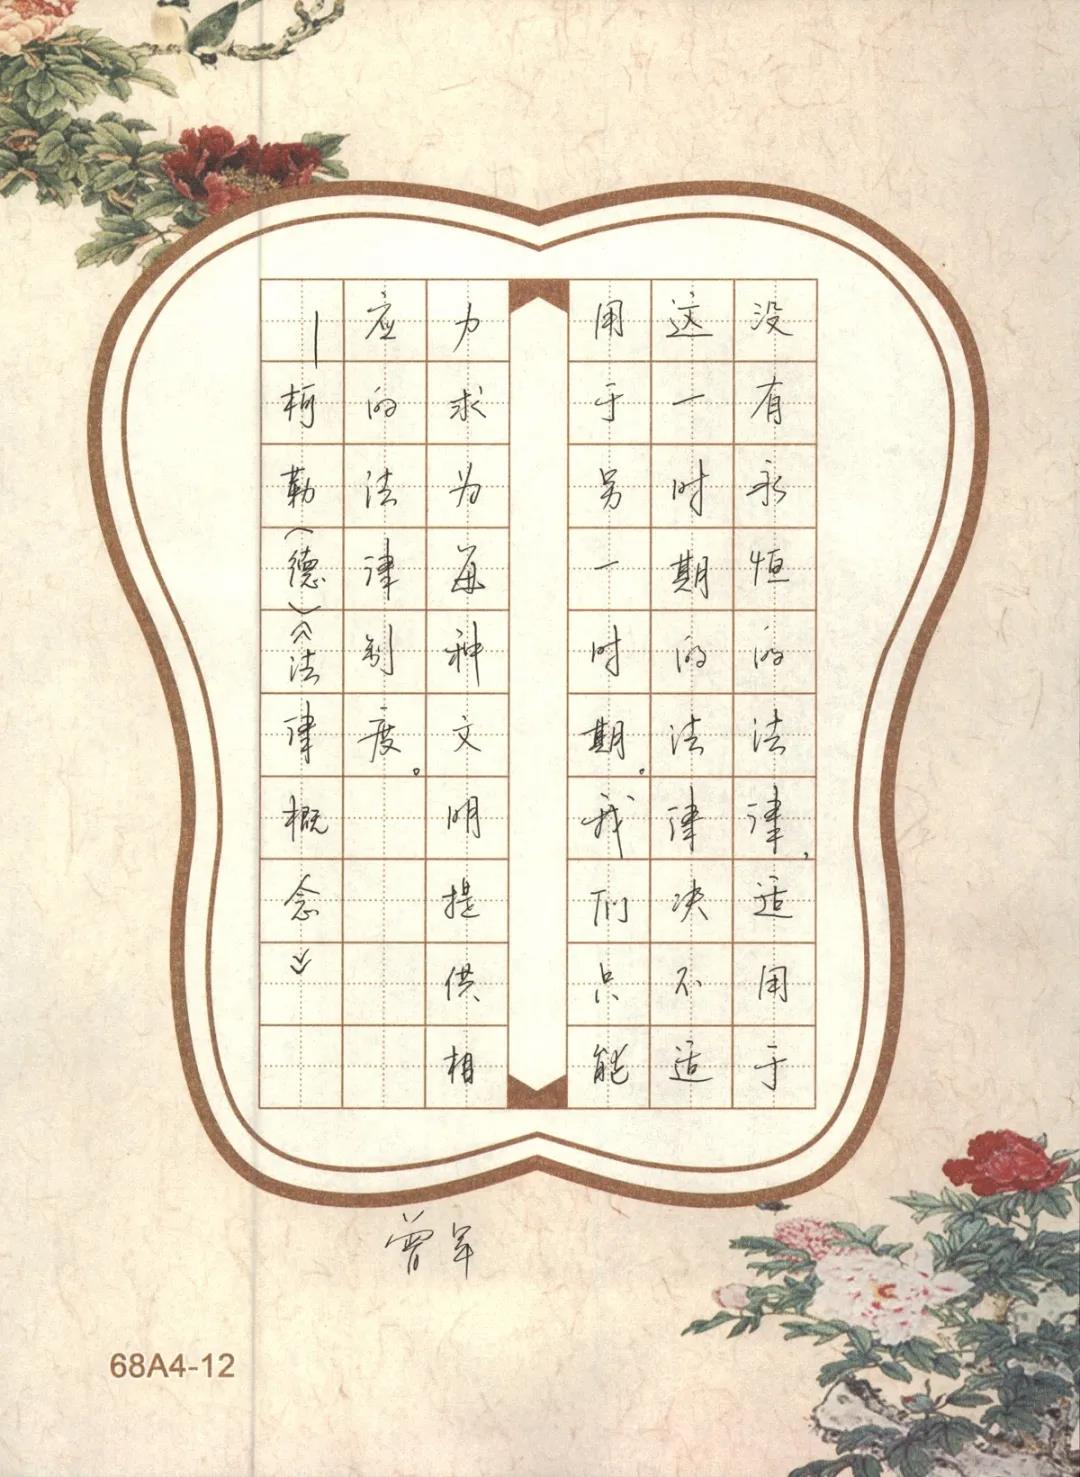 没有永恒的法律,适用于
这一时期的法律决不适
用于另一时期。我们只能
力求为每种文明提供相
应的法律制度。
—柯勒(德)《法律概念》
曾军
68A4-12